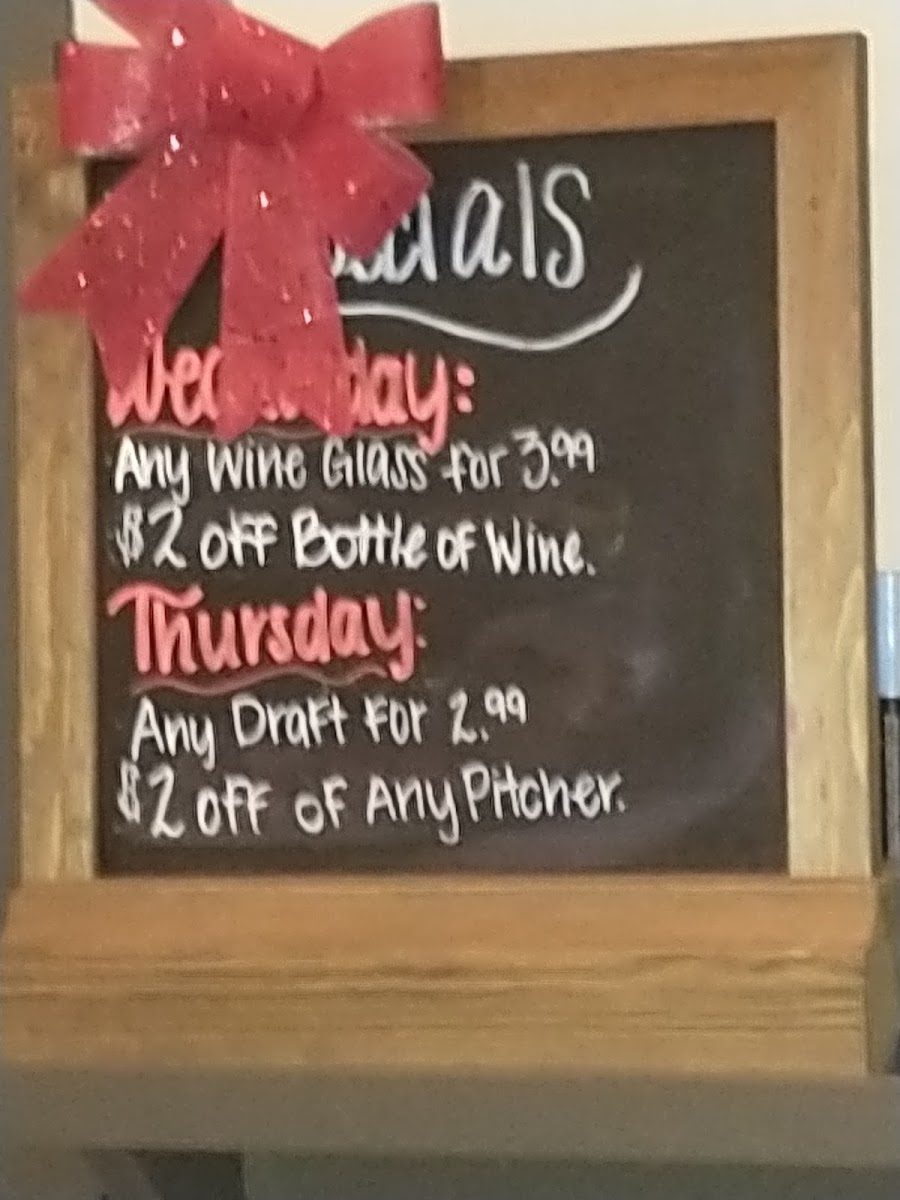 Any Wine Glass for 3.99
$2 off Bottle of Wine.
Thursday:
Any Draft For 2.99
$2 off of Any Pitcher.